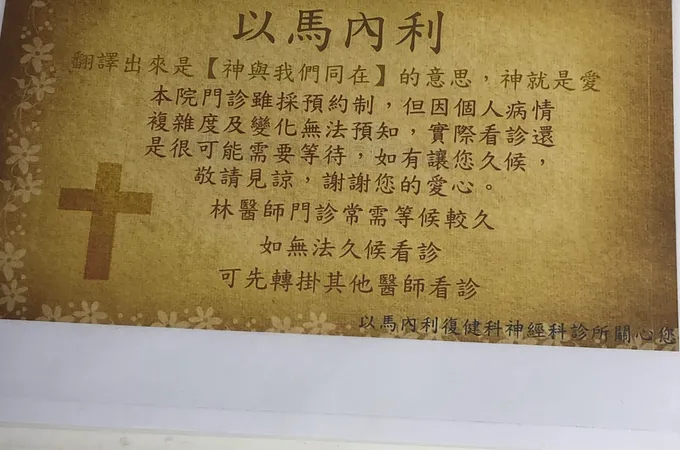 以馬內利
翻譯出來是【神與我們同在】的意思，神就是愛
本院門診雖採預約制，但因個人病情
複雜度及變化無法預知，實際看診還
是很可能需要等待，如有讓您久候，
敬請見諒，謝謝您的愛心。
林醫師門診常需等候較久
如無法久候看診
可先轉掛其他醫師看診
以馬內利復健科神經科診所關心您